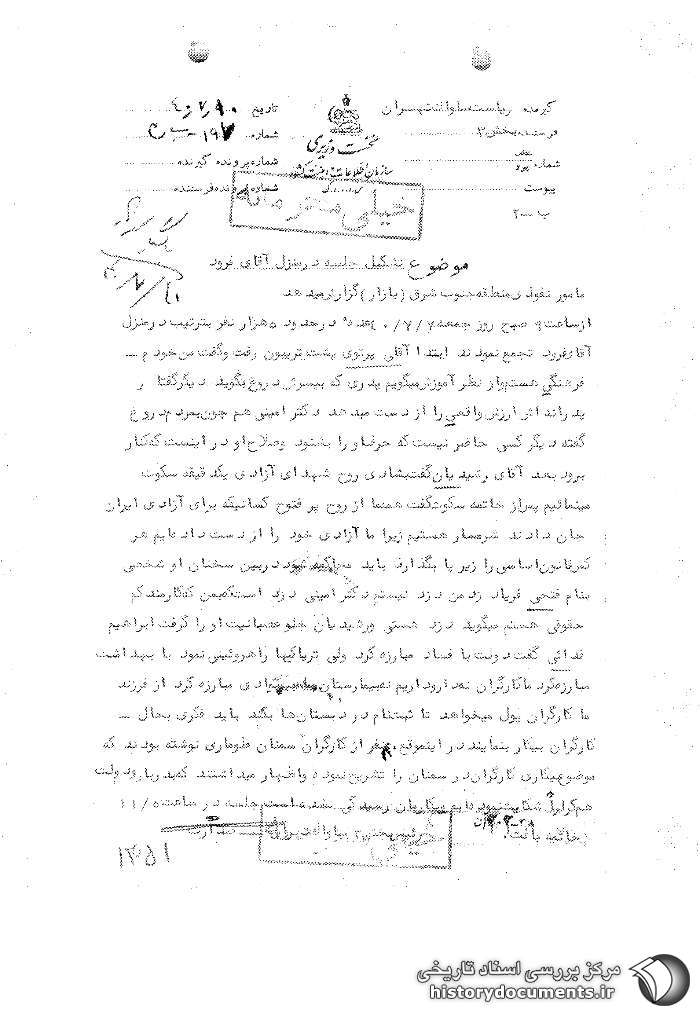 گیرنده ریاست ساواک تهران
فرستنده بخش ۳
شماره
پیوست
نخست وزیری
سازمان اطلاعات و امنیت کشور
تاریخ
شماره
شماره پرونده گیرنده
شماره پرونده فرستنده
خیلی محرمانه
موضوع تشکیل جلسه در منزل آقای فرود
مامور نفوذی منطقه جنوب شرق (بازار) گزارش میدهد
از ساعت ۹ صبح روز جمعه ۴۰/۷/۷ در حدود هزار نفر بترتیب در منزل
آقای فرود تجمع نمودند ابتدا آقای پرتوی پشت تریبون رفت و گفت من خودم
فرهنگی هستم و از نظر آموزش میگویم پدری که به پسرش دروغ بگوید دیگر گفتار
پدر اثر ارزش واقعی را از دست میدهد دکتر امینی هم چون بمردم دروغ
گفته دیگر کسی حاضر نیست که حرف او را بشنود و صلاح او در اینست که کنار
برود بعد آقای رشیدیان گفت بشادی روح شهدای آزادی یک دقیقه سکوت
مینمائیم پس از خاتمه سکوت گفت همه ما از روح پر فتوح کسانیکه برای آزادی ایران
جان دادند شرمسار هستیم زیرا ما آزادی خود را از دست داده ایم هر
که قانون اساسی را زیر پا بگذارد باید شود در بین سخنان او شخصی
بنام فتحی فریاد زد من دزد نیستم دکتر امینی دزد است که بمن که کارمند کم
حقوقی هستم میگوید دزد هستی و رشیدیان جلو عصبانیت او را گرفت ابراهیم
فدائی گفت دولت با فساد مبارزه کرد ولی تریاکیها را هروئینی نمود با بهداشت
مبارزه کرد ما کارگران نه دارو داریم نه بیمارستان مبارزه کرد از فرزند
ما کارگران پول میخواهد تا ثبت نام در دبستان ها بکند باید فکری بحال
کارگران بیکار بنمایند در اینموقع نفر از کارگران سمنان طوماری نوشته بودند که
موضوع بیکاری کارگران در سمنان را تشریح نموده و اظهار میداشتند که بدربار و دولت
هم شکایت نموده ایم بشکایتمان رسیدگی نشده است جلسه در ساعت ۱۱/۵
خاتمه یافت.
رئیس بخش ۳ ساواک تهران
۱۳۰۵۱
مرکز بررسی اسناد تاریخی
historydocuments.ir